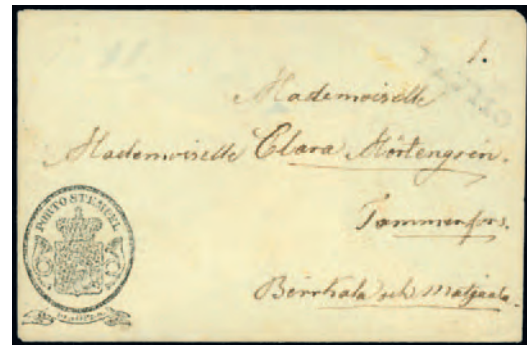 1.
Mademoiselle
Mademoiselle Clara Mörtengren.
Tammerfors.
Birrkala och Matjaala.
PORTO STEMPEL
KOPEK